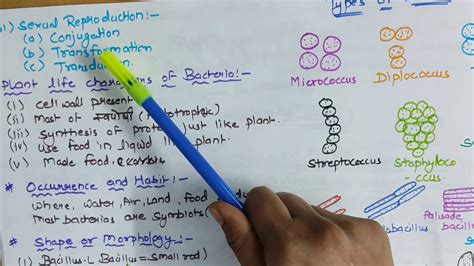 Types of
ii) Sexual Reproduction:-
(a) Conjugation
(b) Transformation
(c) Transduction.
Plant life characters of Bacteria:-
(i) cell wall present
(ii) most of स्वपोषी
(iii) synthesis of protein just like plant.
(iv) use food in liquid like plant.
(v) Made food.
* Occurrence and Habit:-
where, water, Air, Land, food
Most bacterias are Symbiots
* Shape or Morphology:-
1) Bacillus-L Bacillus = Small rod)
Micrococcus
Diplococcus
Streptococcus
Staphyloco
- ccus.
Bacillus
Palisade